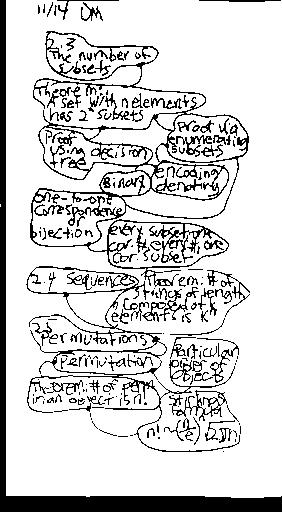 11/14 DM
2.3
The number of
subsets
Theorem:
A set with n elements
has 2ⁿ subsets
Proof
using decision
tree
Proof via
enumerating
subsets
Binary
encoding
denoting
one-to-one
correspondence
or
bijection
every subset one
cor. #, every #, one
cor. subset
2.4 Sequences
Theorem: # of
strings of length
n composed of k
elements is kⁿ
2.5
Permutations
Permutation
Particular
order of
objects
Theorem: # of perm
in an object is n!
Stirling's
formula
n! ~ (n/e)ⁿ √2πn